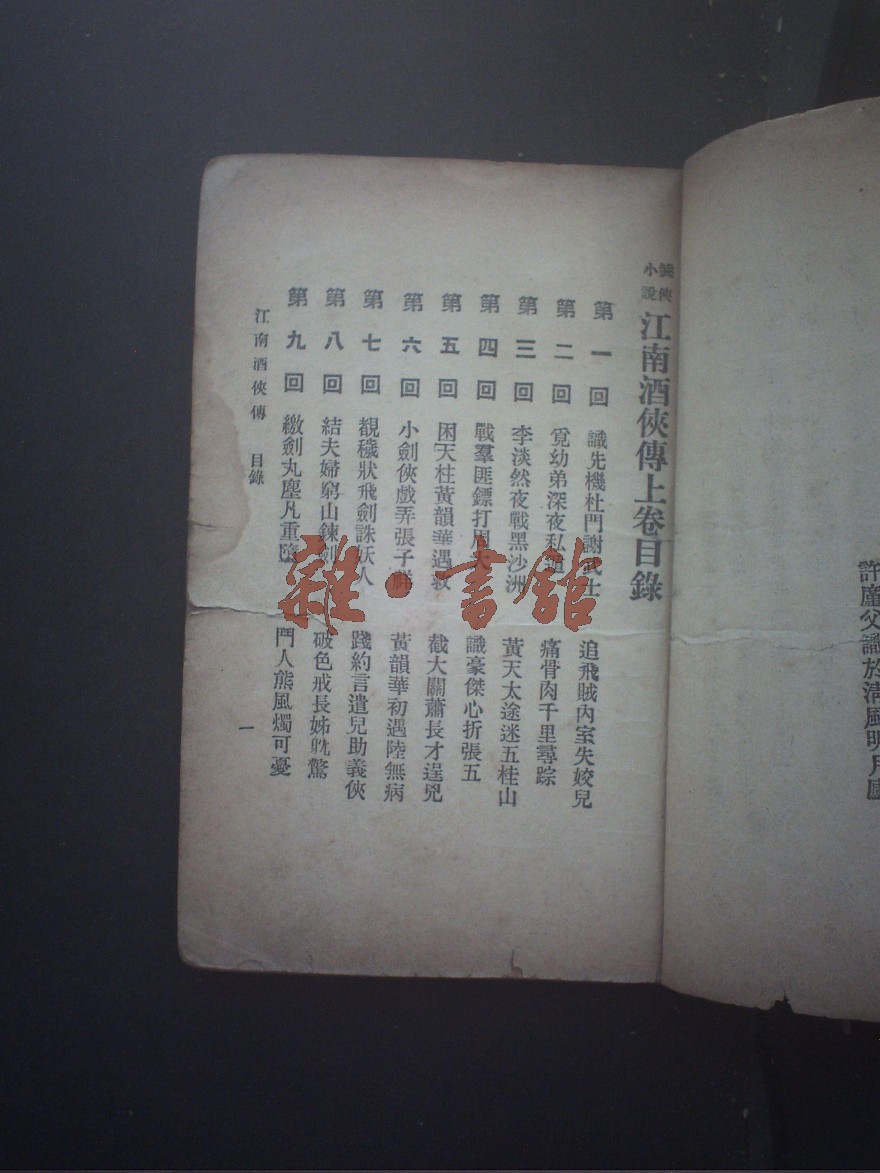 許廑父識於淸風明月廬
武俠小說
江南酒俠傳上卷目錄
第一回 識先機杜門謝武士 追飛賊內室失姣兒
第二回 覓幼弟深夜私遁 痛骨肉千里尋踪
第三回 李淡然夜戰黑沙洲 黃天太途迷五桂山
第四回 戰羣匪鏢打周大 識豪傑心折張五
第五回 困天柱黃韻華遇敵 截大關蕭長才逞兇
第六回 小劍俠戲弄張子鮮 黃韻華初遇陸無病
第七回 覩穢狀飛劍誅妖人 踐約言遣兒助義俠
第八回 結夫婦窮山鍊劍 破色戒長姊耽驚
第九回 繳劍丸塵凡重墮 鬥人熊風燭可憂
江南酒俠傳 目錄
一
雜·書館